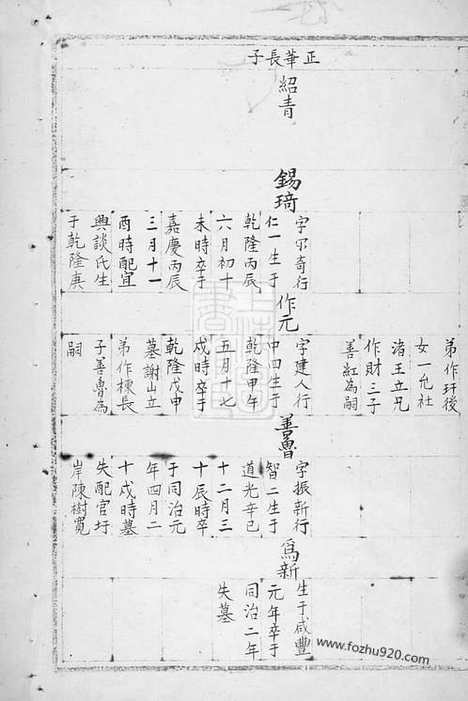 正華長子
紹青
錫琦
字奇行
仁一生于
乾隆丙辰
六月初十
未時卒于
嘉慶丙辰
三月十一
酉時配宜
興談氏生
于乾隆庚
弟作玗後
女一允社
渚王立兄
作財三子
善紅為嗣
作元
字建人行
中四生于
乾隆甲午
五月十七
戌時卒于
乾隆戊申
墓謝山立
弟作棟長
子善魯為
嗣
善魯
字振新行
智二生于
道光辛巳
十二月三
十辰時卒
于同治元
年四月二
十戌時墓
失配官圩
岸陳樹寬
爲新
生于咸豐
元年卒于
同治二年
失墓
www.fozhu920.com